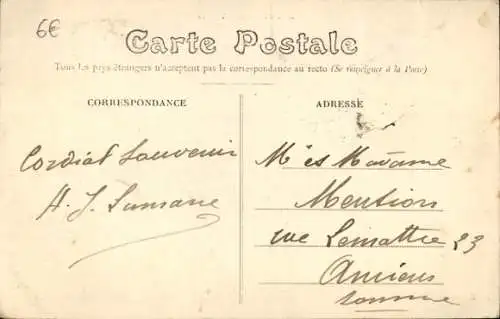 6€
Carte Postale
Tous les pays étrangers n'acceptent pas la correspondance au recto (Se renseigner à la Poste)
CORRESPONDANCE
ADRESSE
Cordial Souvenir
M et Madame
rue Lemattre 23
Amiens
Somme